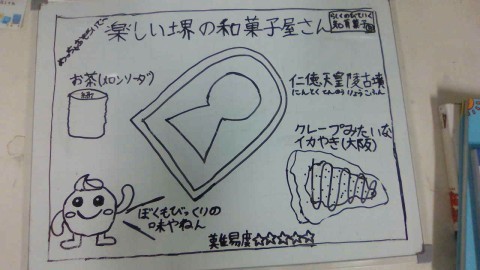 楽しい堺の和菓子屋さん
お茶(メロンソーダ)
仁徳天皇陵古墳
にんとくてんのうりょうこふん
クレープみたいな
イカやき(大阪)
ぼくもびっくりの
味やねん
難易度☆☆☆☆☆